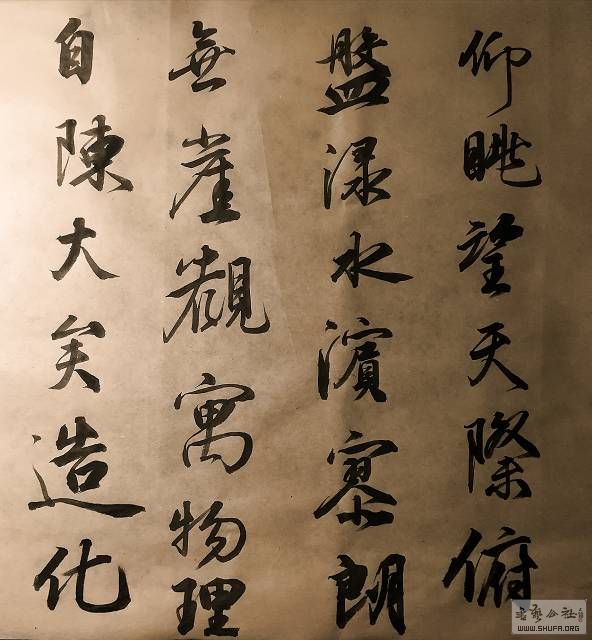 仰眺望天際俯
盤渌水濱寥朗
無崖觀寓物理
自陳大矣造化
书艺公社
WWW.SHUFA.ORG